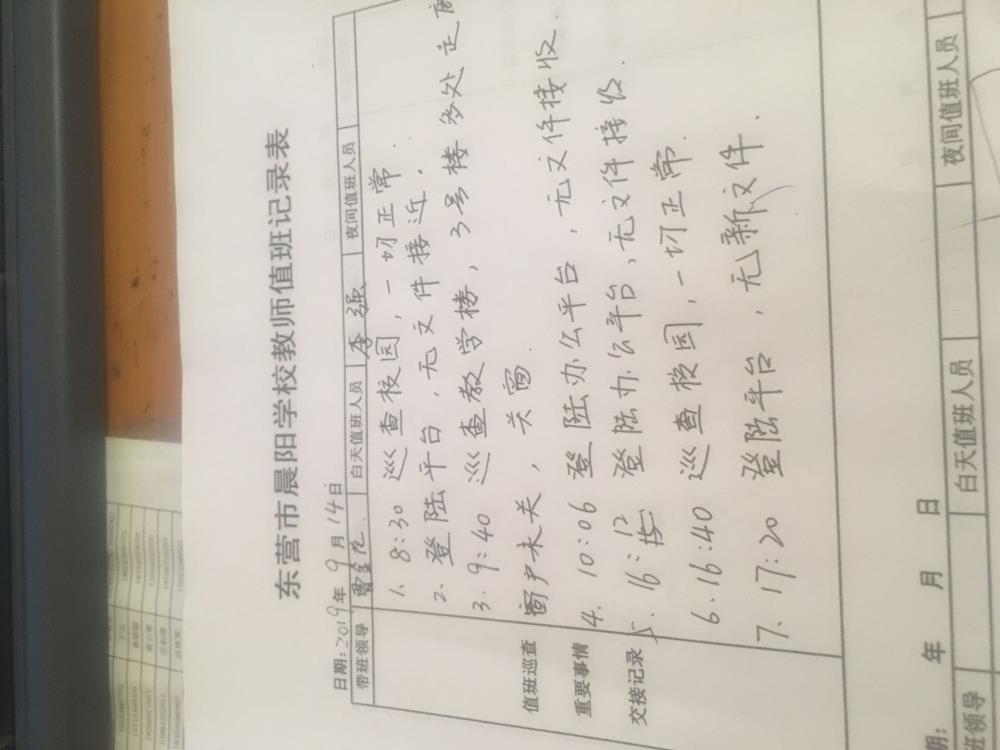 东营市晨阳学校教师值班记录表
日期:2019年9月14日
带班领导 白天值班人员 李强 夜间值班人员
值班巡查
重要事情
交接记录
1. 8:30 巡查校园,一切正常.
2. 登陆平台,无文件接近.
3. 9:40 巡查教学楼,3号楼多处走廊
窗户未关,关窗
4. 10:06 登陆办公平台,无文件接收.
5. 16:12 登陆办公平台,无文件接收.
6. 16:40 巡查校园,一切正常.
7. 17:20 登陆平台,无新文件.
期: 年 月 日
班领导 白天值班人员 夜间值班人员